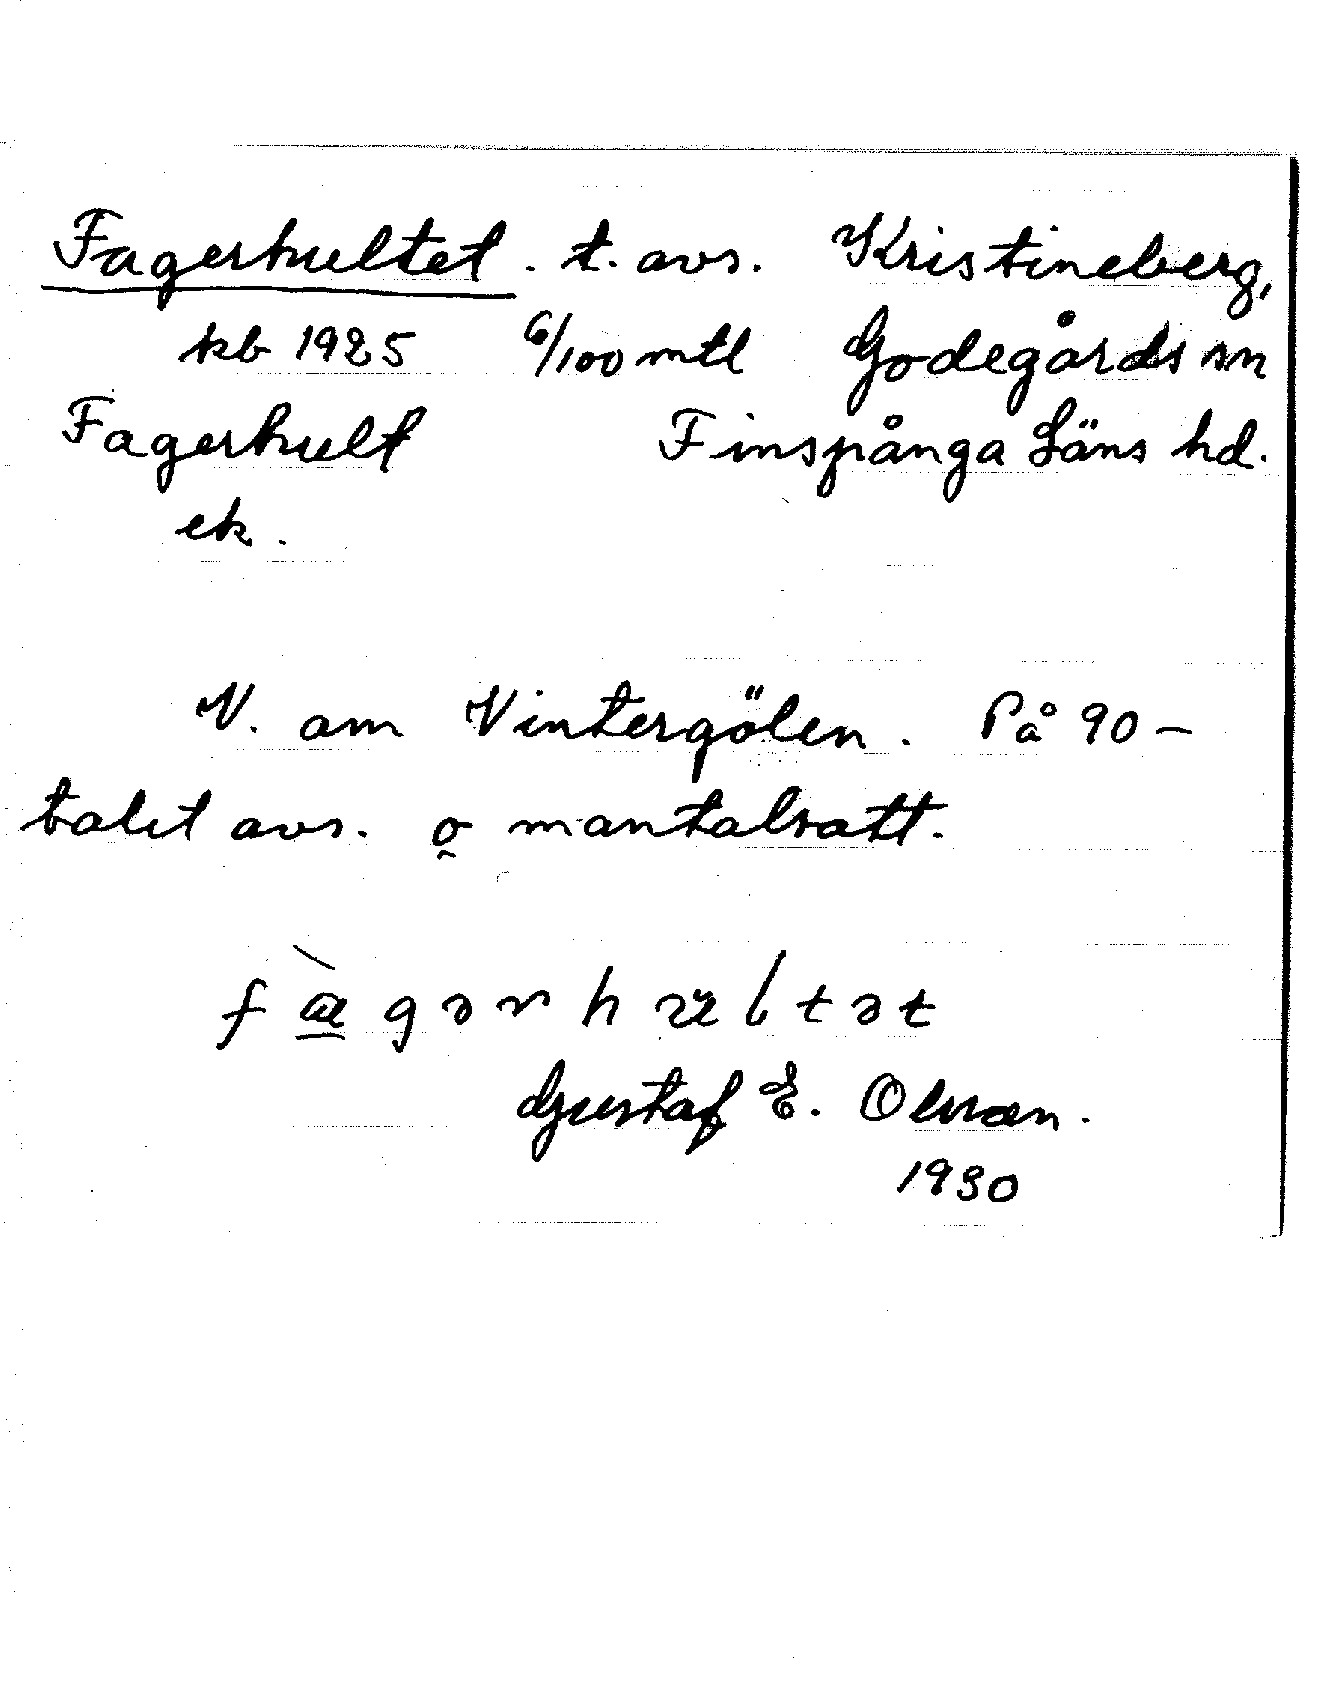 Fagerhultet. t. avs. Kristineberg,
kb 1925 6/100 mtl Godegårds sn
Fagerhult Finspånga Läns hd.
ek.
V. om Vintergölen. På 90-
talet avs. o mantalsatt.
fàgərhultət
Gustaf E. Olsson.
1930